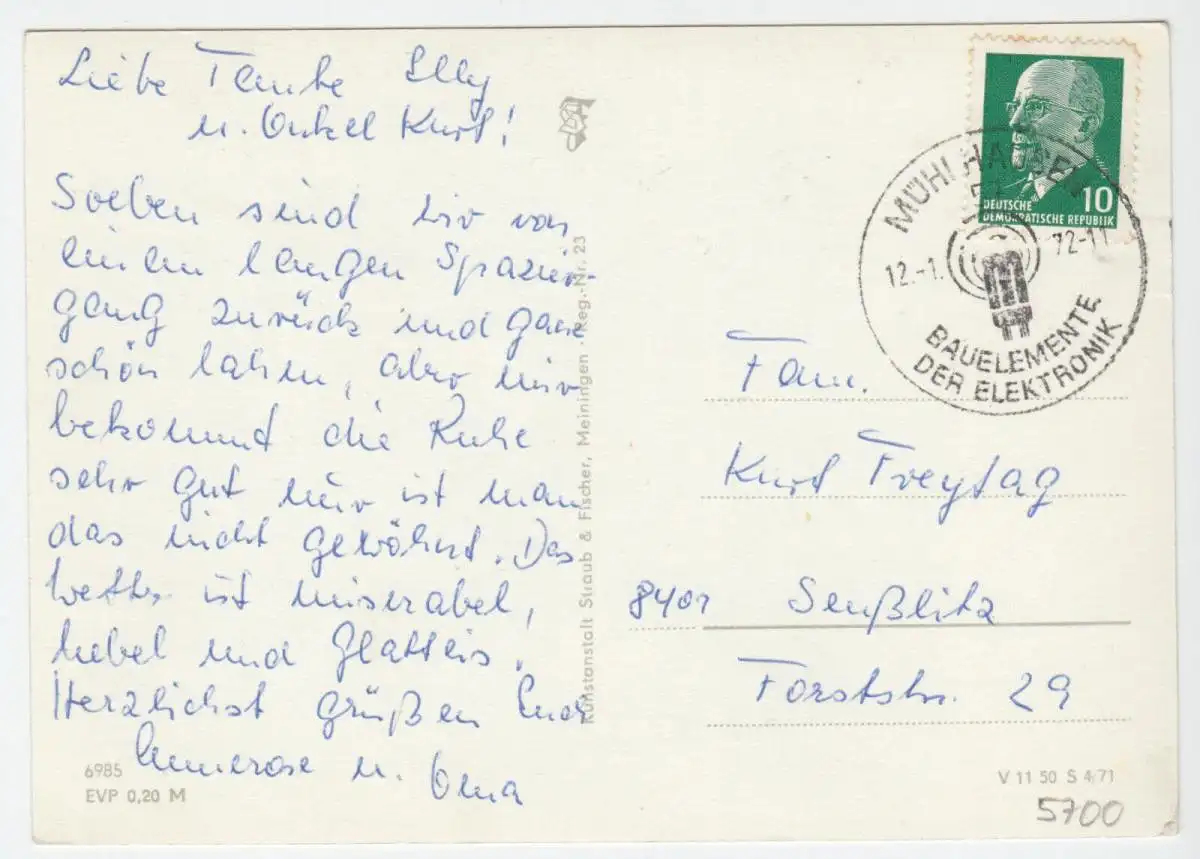 Liebe Tante Elly
u. Onkel Kurt!
Soeben sind wir von
einem langen Spazier-
gang zurück und ganz
schön lahm, aber mir
bekommt die Ruhe
sehr gut nur ist man
das nicht gewöhnt. Das
Wetter ist miserabel,
Nebel und Glatteis.
Herzlichst grüßen Euch
Annerose u. Oma
6985
EVP 0,20 M
Kunstanstalt Straub & Fischer, Meiningen · Reg.-Nr. 23
10
DEUTSCHE
DEMOKRATISCHE REPUBLIK
MÜHLHAUSEN
12.-1. 72-11
BAUELEMENTE
DER ELEKTRONIK
Fam.
Kurt Freytag
8401 Seußlitz
Forststr. 29
V 11 50 S 4/71
5700